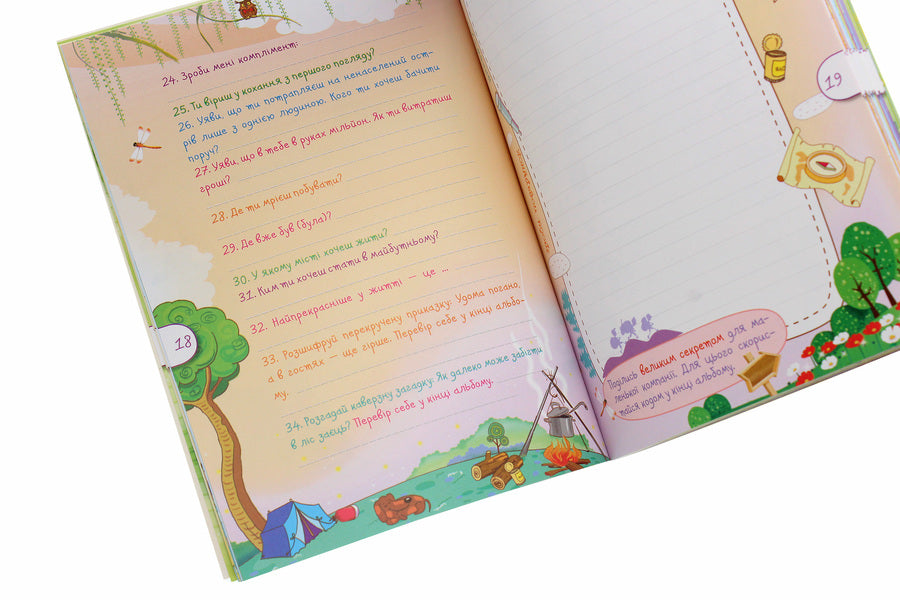 24. Зроби мені комплімент:
25. Ти віриш у кохання з першого погляду?
26. Уяви, що ти потрапляєш на ненаселений ост-
рів лише з однією людиною. Кого ти хочеш бачити
поруч?
27. Уяви, що в тебе в руках мільйон. Як ти витратиш
гроші?
28. Де ти мрієш побувати?
29. Де вже був (була)?
30. У якому місті хочеш жити?
31. Ким ти хочеш стати в майбутньому?
32. Найпрекрасніше у житті — це ...
33. Розшифруй перекручену приказку: Удома погано,
а в гостях — ще гірше. Перевір себе у кінці альбо-
му.
34. Розгадай каверзну загадку: Як далеко може забігти
в ліс заєць? Перевір себе у кінці альбому.
18
19
Поділись великим секретом для ма-
ленької компанії. Для цього скорис-
тайся кодом у кінці альбому.